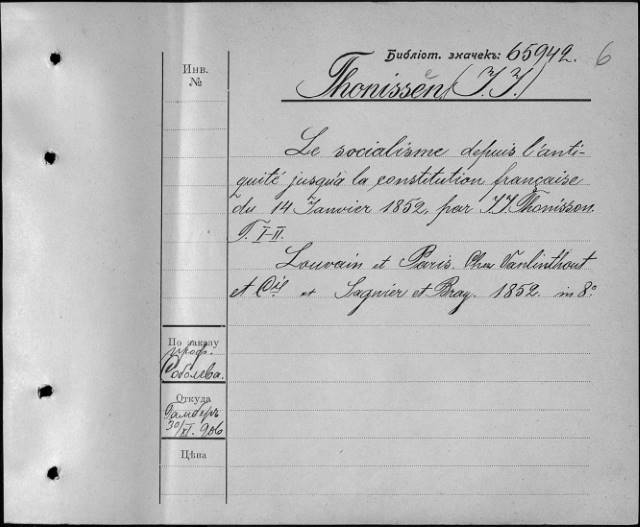 Библіот. значекъ: 65942. 6
Инв.
№
Thonissen, (J. J.)
Le socialisme depuis l'anti-
quité jusqu'à la constitution française
du 14 Janvier 1852, par J. J. Thonissen.
T. I-II.
Louvain et Paris. Chez Vanlinthout
et Cie et Sagnier et Bray. 1852. in 8°
По заказу
проф.
Соболева.
Откуда
30/XI. 906
Цѣна